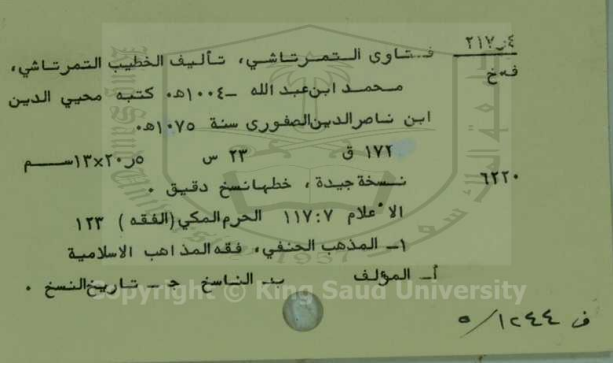 ٢١٧ر٤
ف٠خ
فتاوى التمرتاشي، تأليف الخطيب التمرتاشي،
محمد ابن عبد الله -١٠٠٤ه٠ كتبه محيي الدين
ابن ناصر الدين الصفوري سنة ١٠٧٥ه٠
١٧٢ ق ٢٣ س ٢٠ر٥×١٣سم
٦٢٢٠ نسخة جيدة، خطها نسخ دقيق ٠
الأعلام ٧:١١٧ الحرم المكي (الفقه) ١٢٣
١- المذهب الحنفي، فقه المذاهب الاسلامية
أ- المؤلف ب- الناسخ ج- تاريخ النسخ ٠
Copyright © King Saud University
ف ١٢٤٤/٥